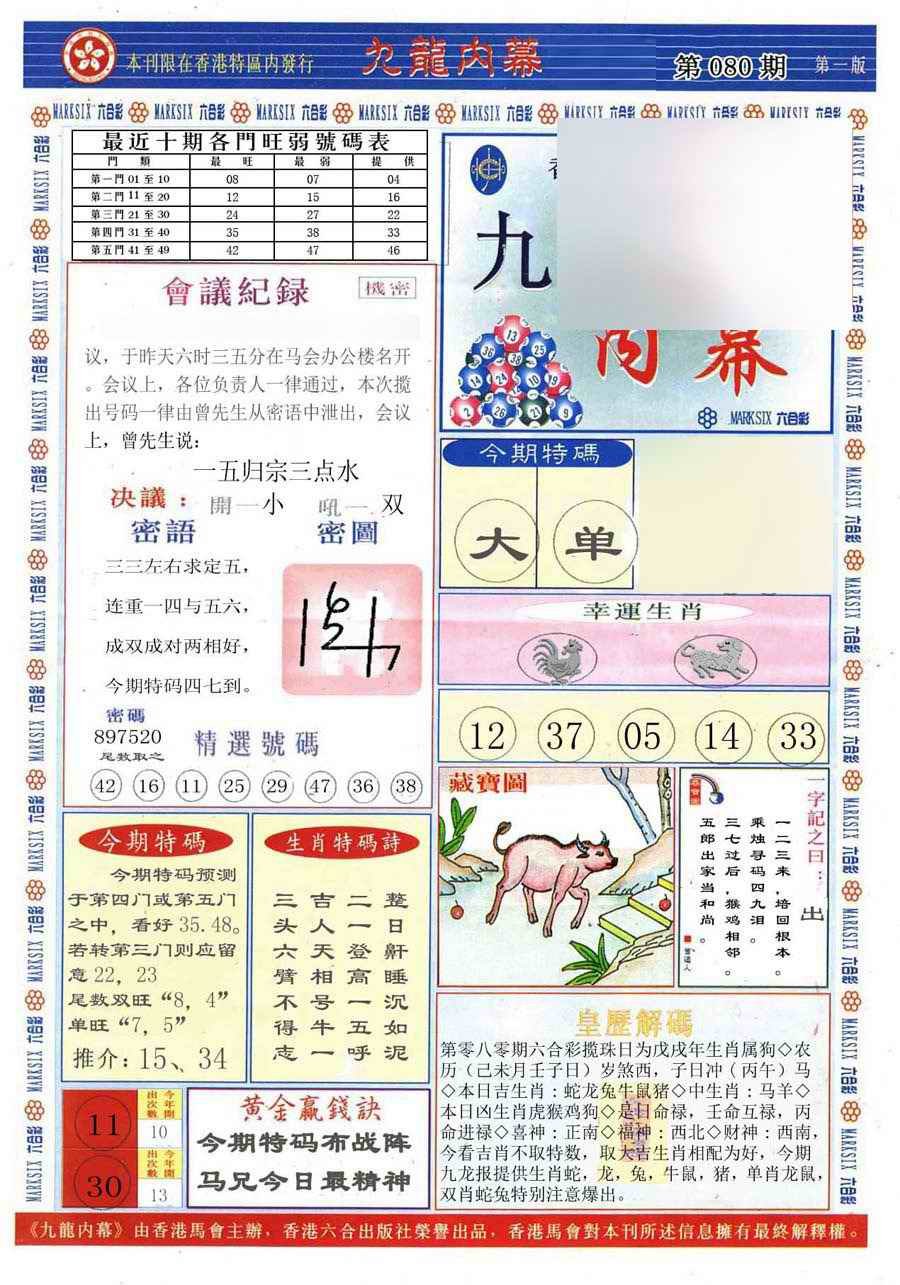 本刊限在香港特區内發行
九龍内幕
第 080 期
第一版
MARKSIX 六合彩
最近十期各門旺弱號碼表
門 類 最 旺 最 弱 提 供
第一門 01 至 10 08 07 04
第二門 11 至 20 12 15 16
第三門 21 至 30 24 27 22
第四門 31 至 40 35 38 33
第五門 41 至 49 42 47 46
九
内幕
13
36 38 25
14 24 10 19
2 26 23 9
MARKSIX 六合彩
會議紀録
機密
议，于昨天六时三五分在马会办公楼名开
。会议上，各位负责人一律通过，本次揽
出号码一律由曾先生从密语中泄出，会议
上，曾先生说：
一五归宗三点水
决議：開一小 吼一 双
密語 密圖
三三左右求定五，
连重一四与五六，
成双成对两相好，
今期特码四七到。
密碼
897520
尾数取之
精選號碼
42 16 11 25 29 47 36 38
今期特碼
大 单
幸運生肖
12 37 05 14 33
藏寶圖
一字記之曰：出
一二三来，培回根本。
乘烛寻码四九泪。
三七过后，猴鸡相邻。
五郎出家当和尚。
今期特碼
今期特码预测
于第四门或第五门
之中，看好 35.48。
若转第三门则应留
意 22，23
尾数双旺“8，4”
单旺“7，5”
推介：15、34
生肖特碼詩
整日鼾睡沉如泥
二一登高一五呼
吉人天相号牛一
三头六臂不得志
11
今年開出次數
10
30
今年開出次數
13
黄金贏錢訣
今期特码布战阵
马兄今日最精神
皇歷解碼
第零八零期六合彩揽珠日为戊戌年生肖属狗◇农
历（己未月壬子日）岁煞西，子日冲（丙午）马
◇本日吉生肖：蛇龙兔牛鼠猪◇中生肖：马羊◇
本日凶生肖虎猴鸡狗◇是日命禄，壬命互禄，丙
命进禄◇喜神：正南◇福神：西北◇财神：西南，
今看吉肖不取特数，取大吉生肖相配为好，今期
九龙报提供生肖蛇，龙，兔，牛鼠，猪，单肖龙鼠，
双肖蛇兔特别注意爆出。
《九龍内幕》由香港馬會主辦，香港六合出版社榮譽出品，香港馬會對本刊所述信息擁有最終解釋權。